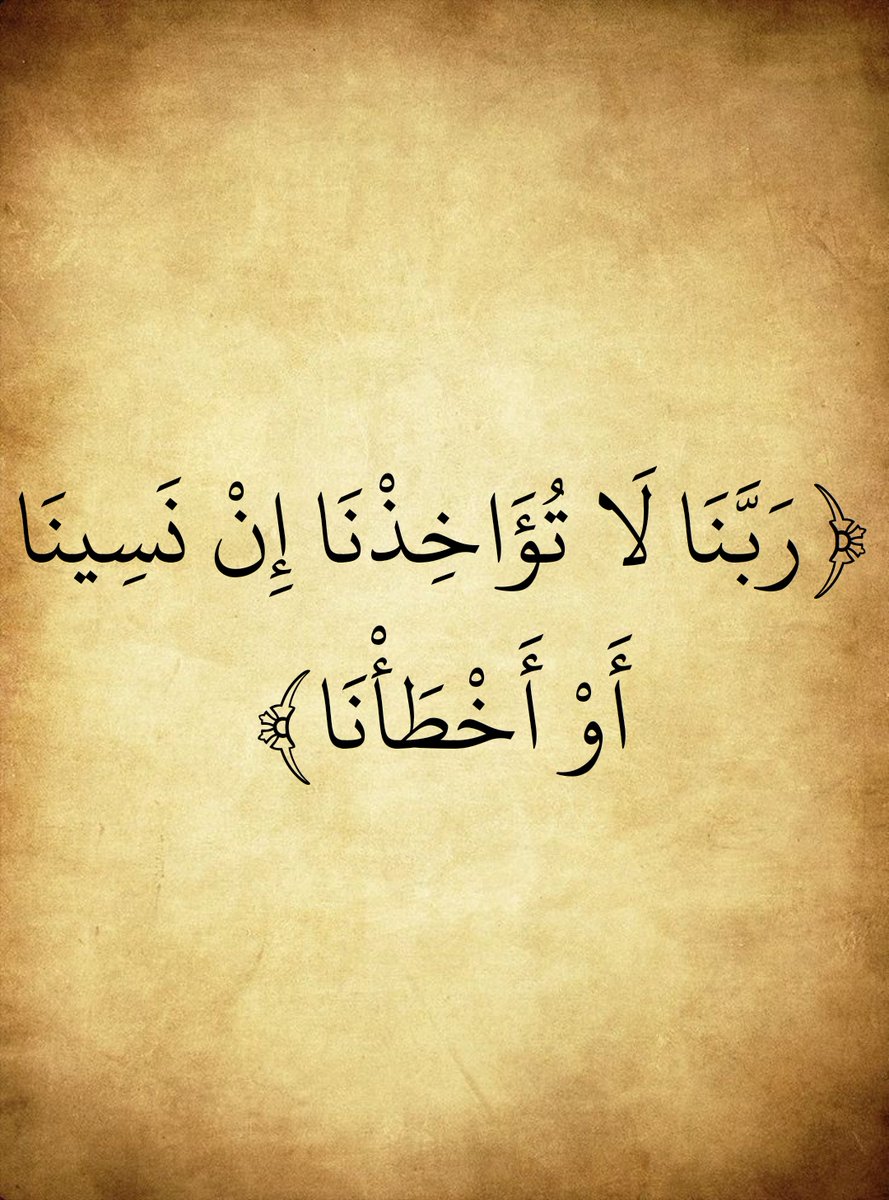 ﴿رَبَّنَا لَا تُؤَاخِذْنَا إِنْ نَسِينَا
أَوْ أَخْطَأْنَا﴾